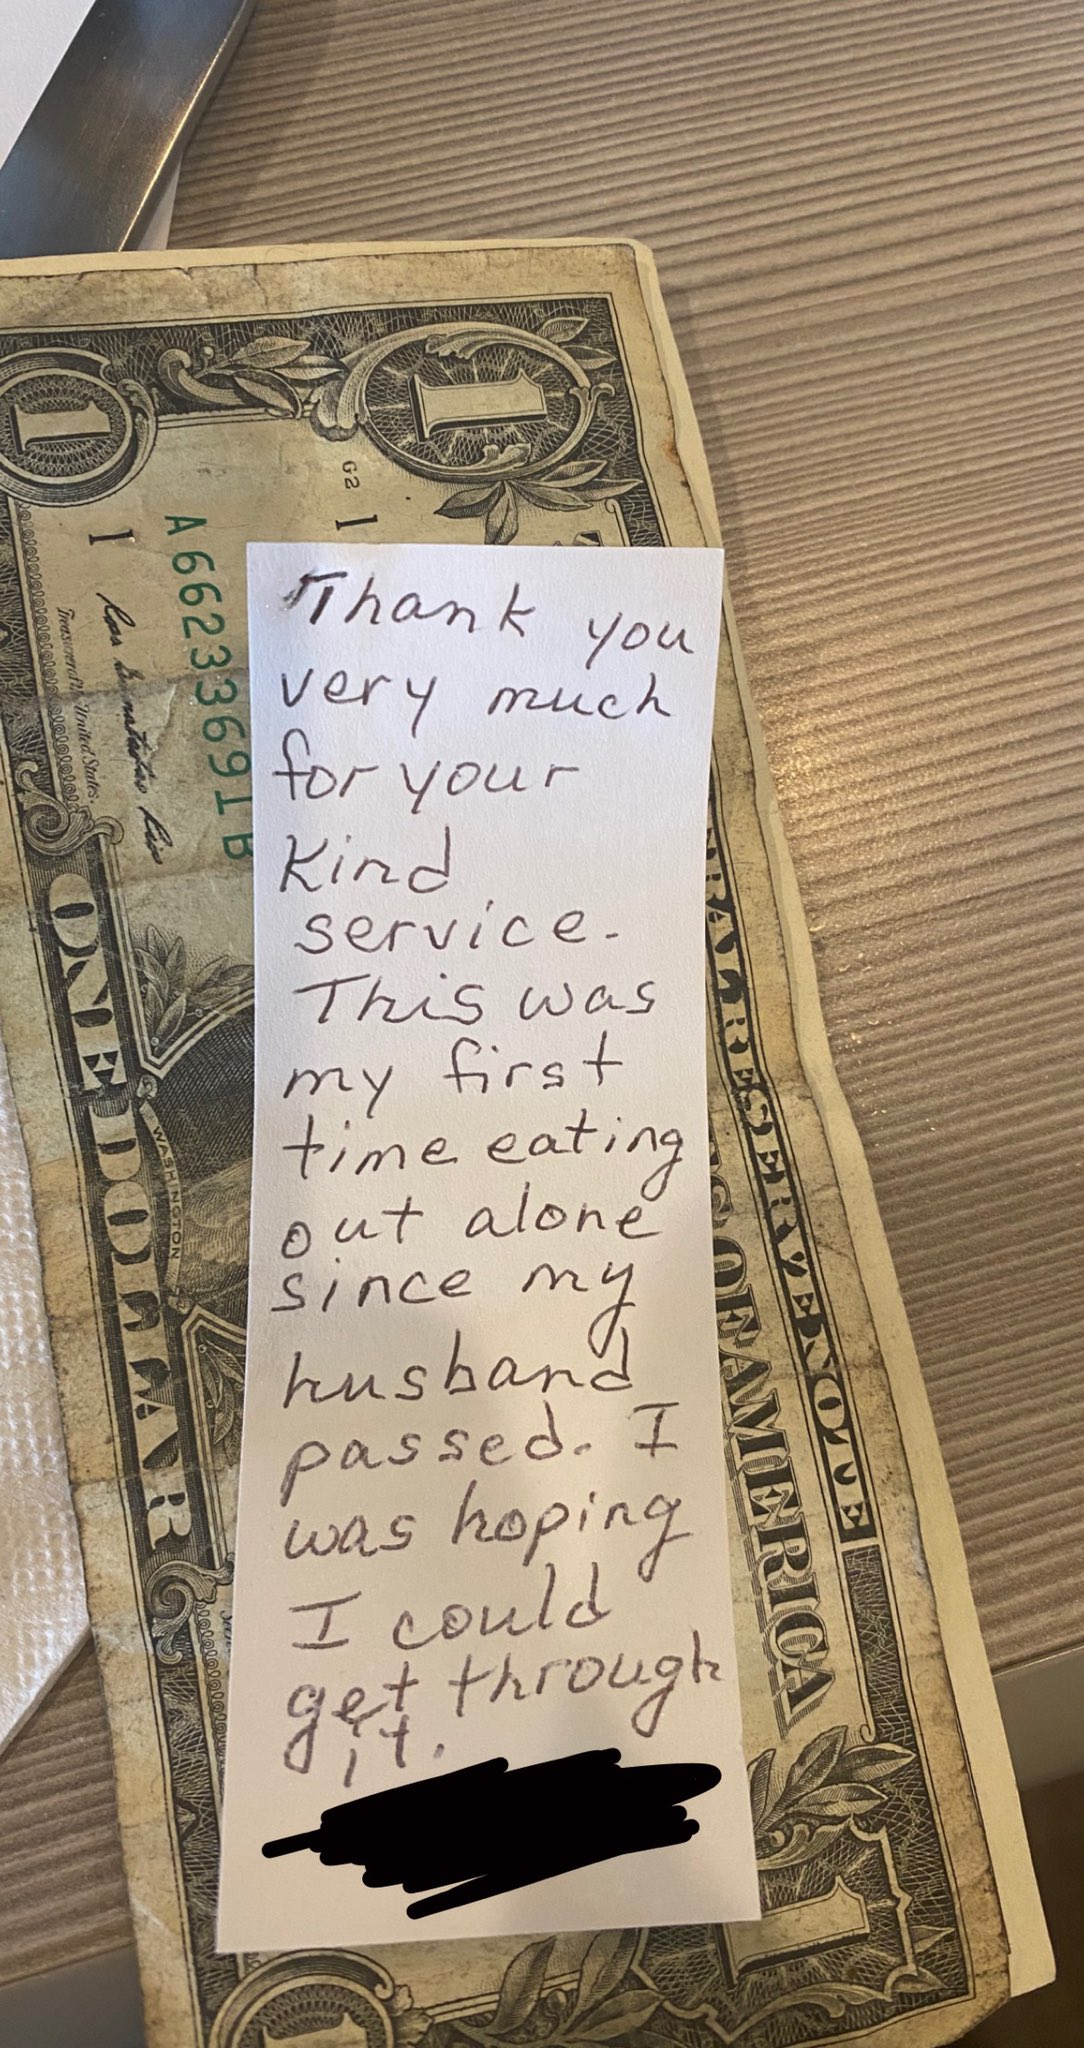 Thank you
very much
for your
kind
service.
This was
my first
time eating
out alone
since my
husband
passed. I
was hoping
I could
get through
it.
1
1
G2
1
1
A66233691B
Treasurer of the United States.
ONE DOLLAR
WASHINGTON
OF AMERICA
RESERVE NOTE
1
1